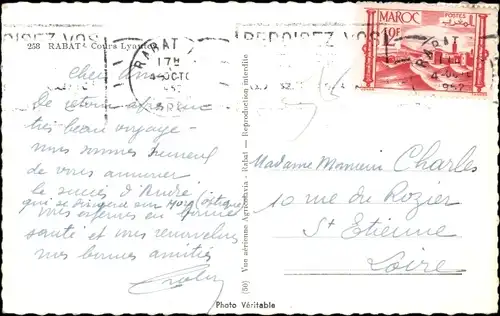 REBOISEZ VOS
258 RABAT - Cours Lyautey
RABAT
17H
4-OCTO
Cher Ami
De retour après un
très beau voyage -
nous sommes heureux
de vous annoncer
le succès d'André
qui se trouvera sur
nous espérons en bonne
santé et vous renouvelons
nos bonnes amitiés
(50) Vue aérienne - Rabat - Reproduction interdite
REBOISEZ VOS
POSTES
MAROC
10F
RABAT
4-OCTO
1952
Madame Monsieur Charles
10 rue du Rozier
St Etienne
Loire
Photo Véritable